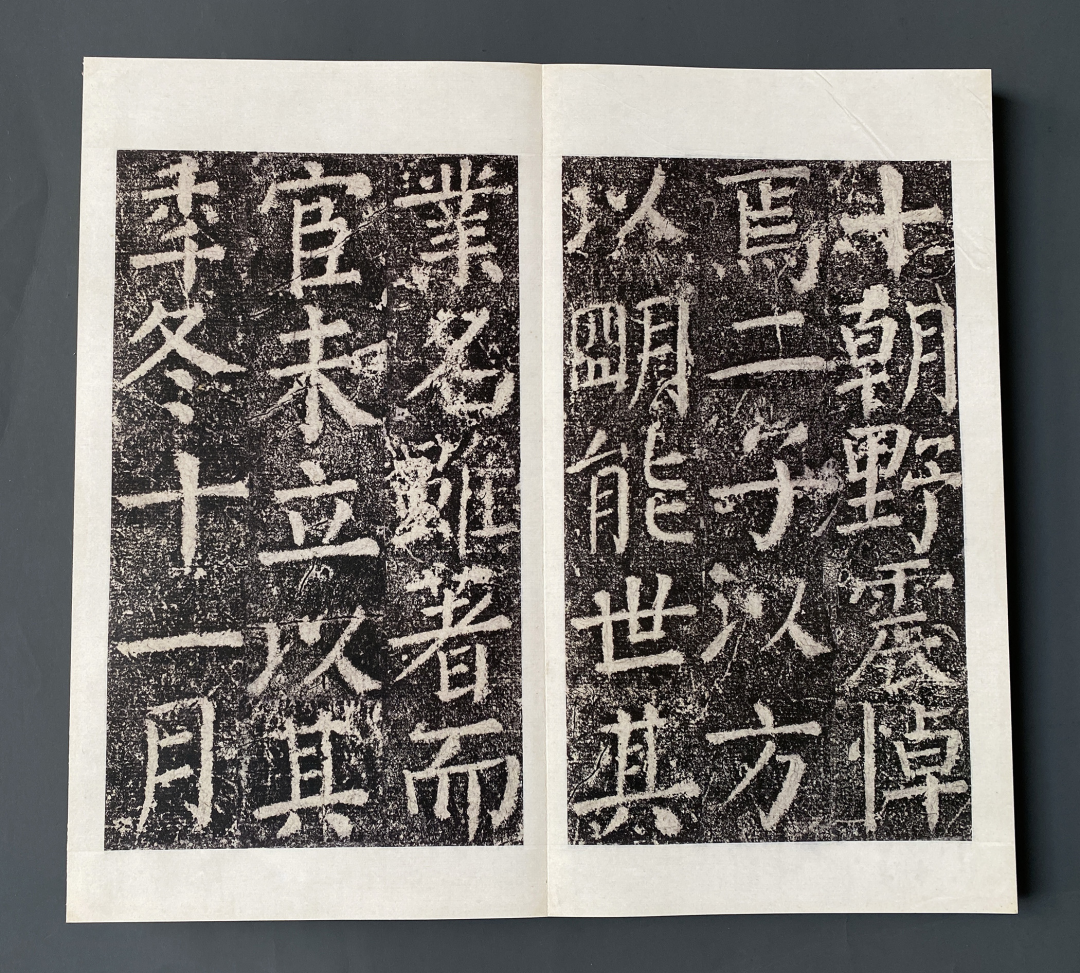 十朝野震悼
焉二子以方
以朙能世其
業名難著而
宦未立以其
季冬十一月